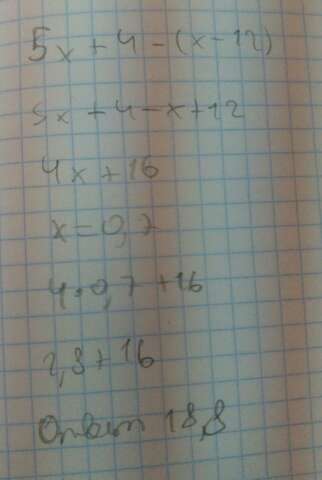 5x + 4 - (x - 12)
5x + 4 - x + 12
4x + 16
x = 0,7
4 · 0,7 + 16
2,8 + 16
Ответ 18,8